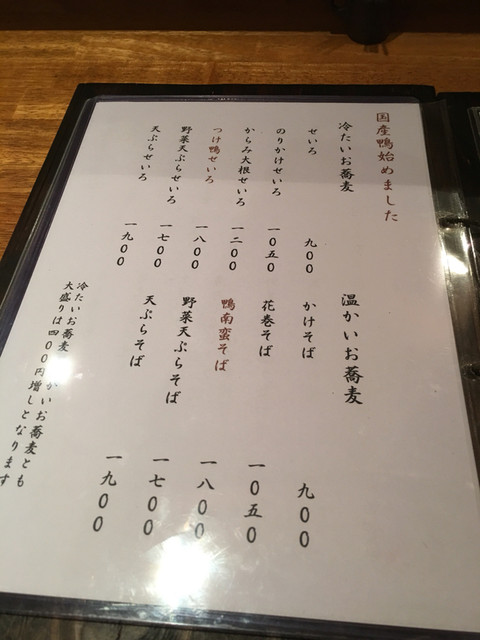 国産鴨始めました
冷たいお蕎麦
せいろ 九〇〇
のりかけせいろ 一〇五〇
からみ大根せいろ 一二〇〇
つけ鴨せいろ 一八〇〇
野菜天ぷらせいろ 一七〇〇
天ぷらせいろ 一九〇〇
温かいお蕎麦
かけそば 九〇〇
花巻そば 一〇五〇
鴨南蛮そば 一八〇〇
野菜天ぷらそば 一七〇〇
天ぷらそば 一九〇〇
冷たいお蕎麦 かいお蕎麦とも
大盛りは四〇〇円増しとなります